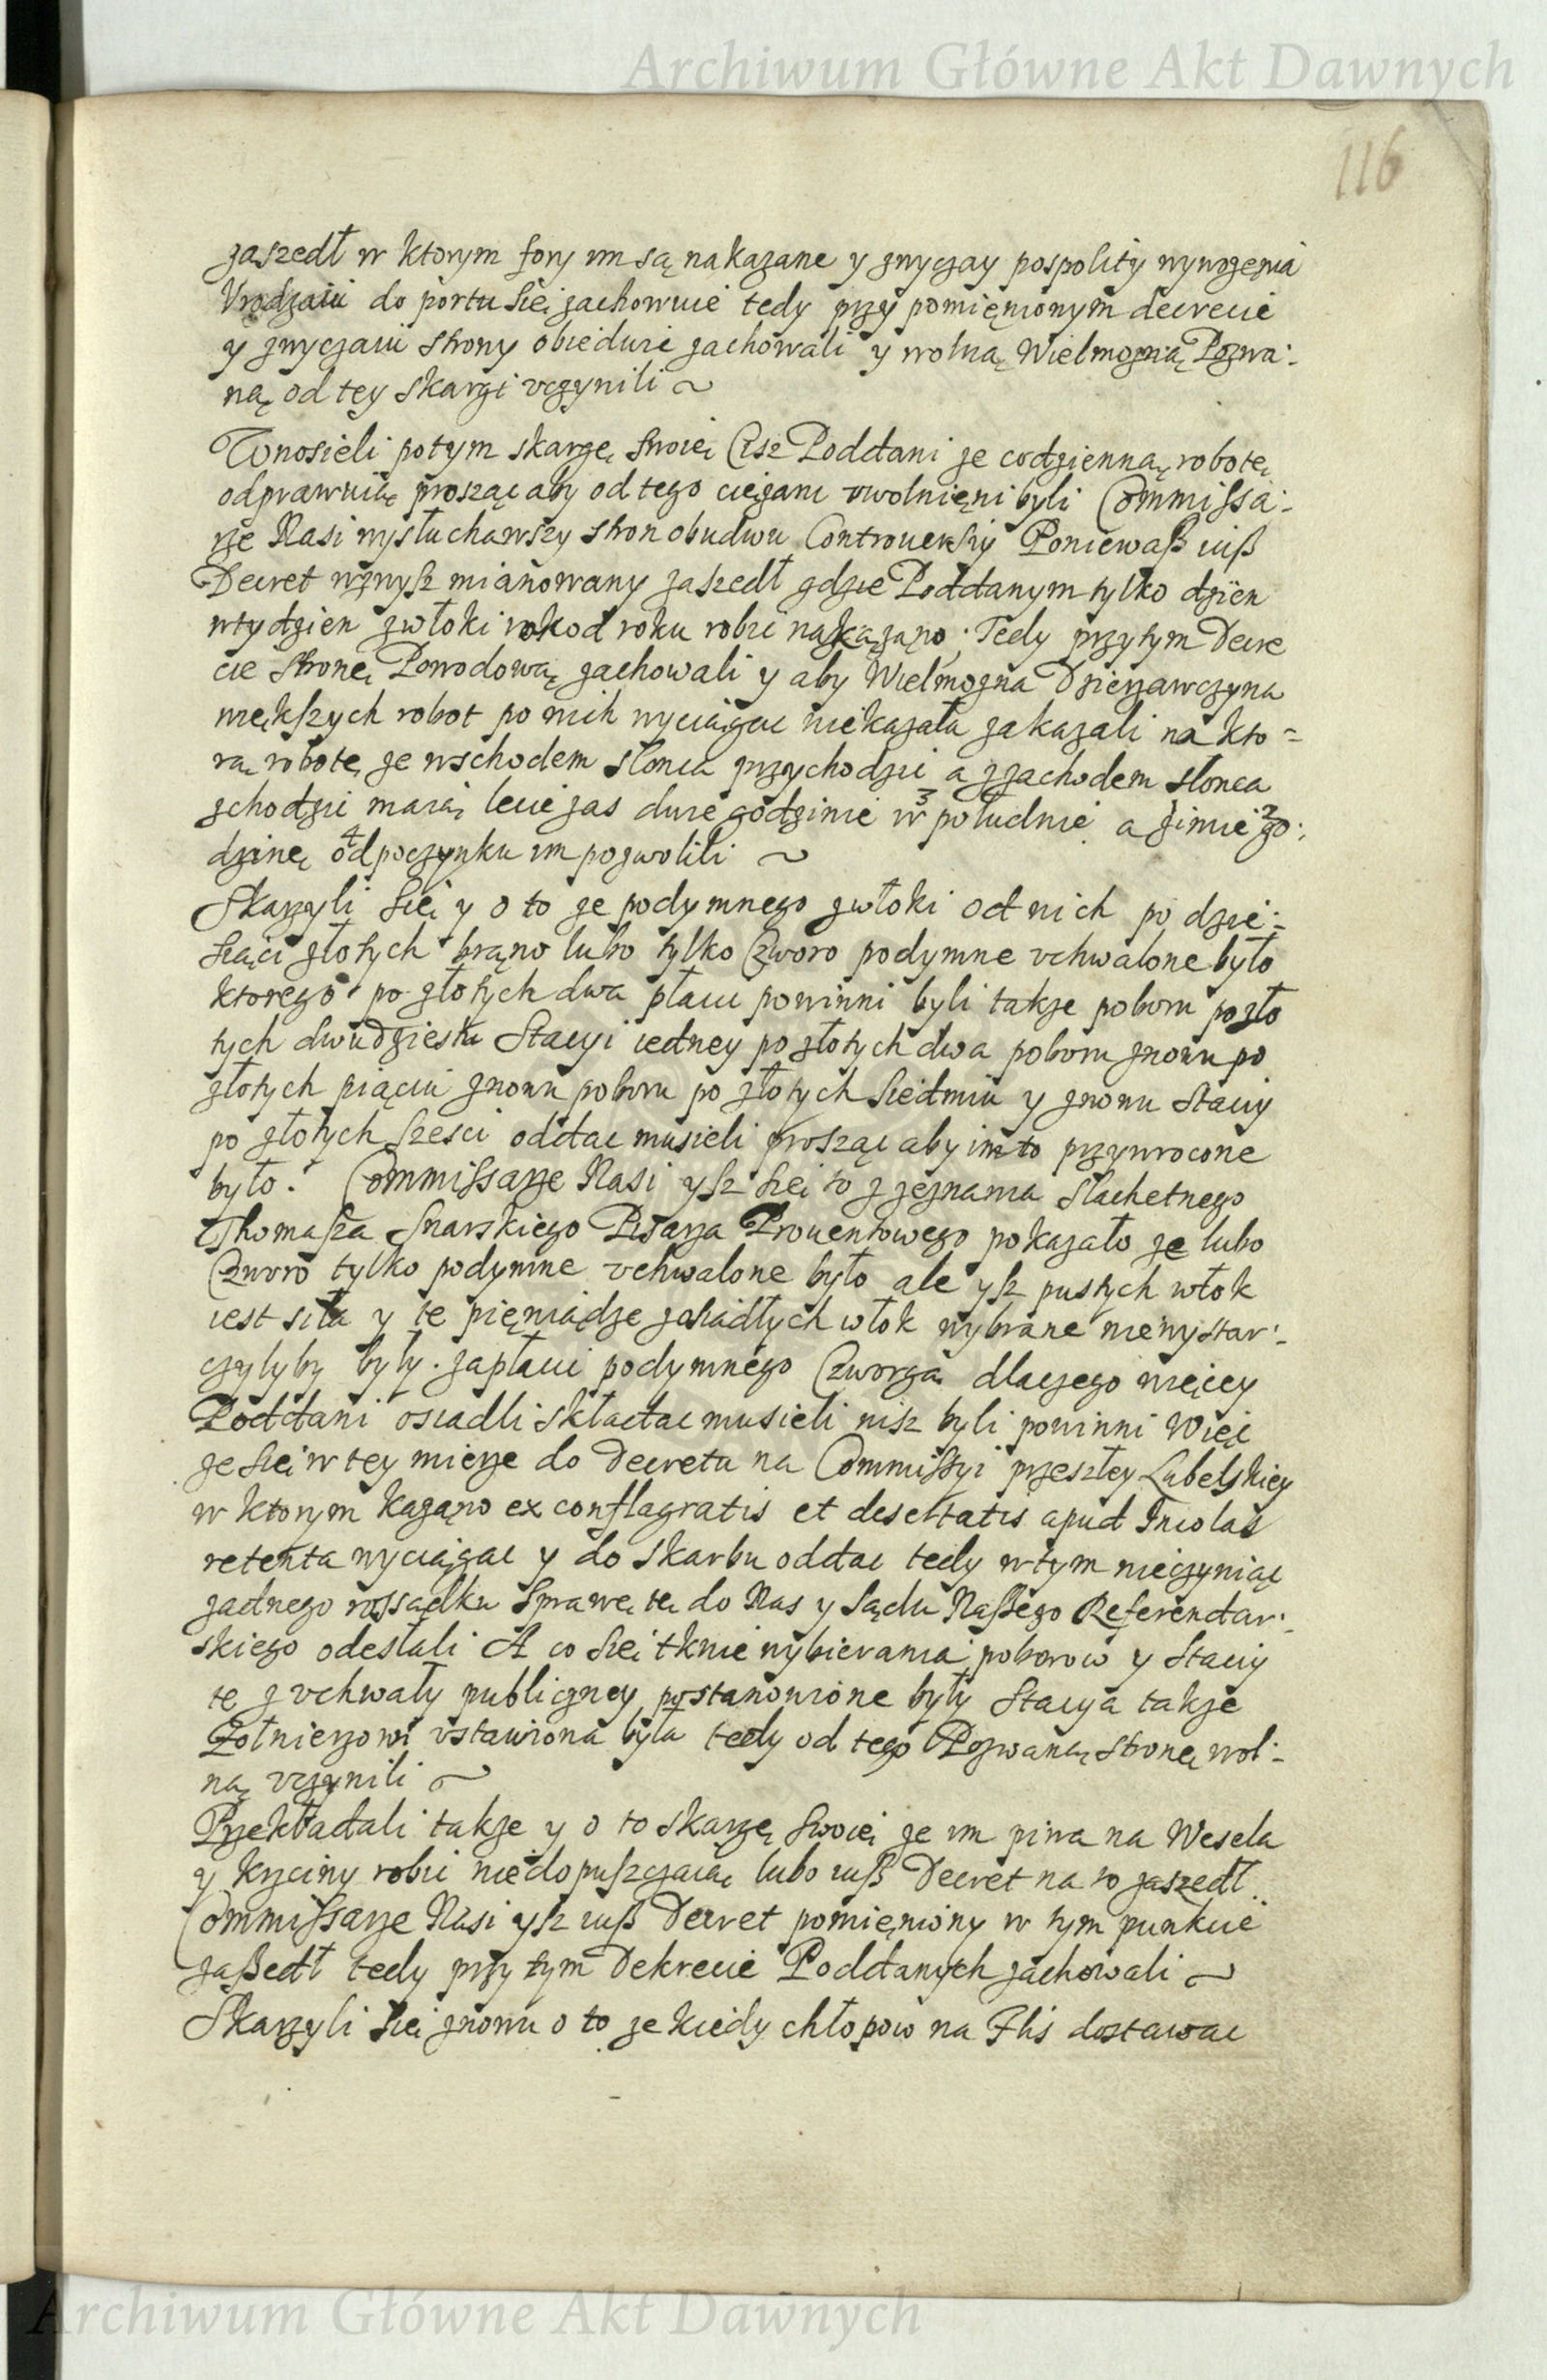 Archiwum Główne Akt Dawnych
116
zaszedł w ktorym fory im są nakazane y zwyczay pospolity wywozenia
Vrodzaiu do portu się zachowuie tedy przy pomięnionym decrecie
y zwyczaiu strony obiedwie zachowali y wolną Wielmozną Pozwa:
ną od tey skargi vczynili ~
Wnosieli potym skargę swoię Cisz Poddani ze codzienną robotę
odprawuią prosząc aby od tego cięzaru vwolnięni byli Commissa:
rze Nasi wysłuchawszy stron obudwu Controuersiy Poniewaß iuß
Decret wzwysz mianowany zaszedł gdzie Poddanym tylko dzien
wtydzien zwłoki rok od roku robić nakazano; Tedy przytym Decre
cie stronę Powodową zachowali y aby Wielmozna Dzierzawczyna
większych robot po nich wyciągac niekazała zakazali na kto=
rą robotę ze wschodem słonca przychodzić a zzachodem słonca
zchodzic maią lecie zas dwie godzinie w 3 południe a zimie 2 go:
dzinę 4 odpoczynku im pozwolili ~
Skarzyli się y o to ze podymnego zwłoki od nich po dzie:
siąci złotych brąno lubo tylko Czworo podymne vchwalone było
ktorego po złotych dwa płacić powinni byli takze poboru pozło
tych dwudziestu Stacyi iedney po złotych dwa poboru znowu po
złotych piąciu znowu poboru po złotych siedmiu y znowu staciy
po złotych szesci oddac musieli prosząc aby im to przywrocone
było. Commissarze Nasi ysz się to z zeznania slachetnego
Thomasza Snarskiego Pisarza Prouentowego pokazało ze lubo
Czworo tylko podymne vchwalone było ale ysz pustych włok
iest siła y te pięniądze zosiadłych włok wybrane niewystar:
czyłyby były zapłacić podymnego Czworga dlaczego więcey
Poddani osiadli składac musieli nisz byli powinni Więc
ze się w tey mierze do Decretu na Commissyi przeszłey Lubelskiey
w ktorym kazano ex conflagratis et desertatis apud Incolas
retenta wyciągac y do skarbu oddac tedy wtym nieczyniąc
zadnego rossądku Sprawę tę do Nas y Sądu Naßego Referendar:
skiego odesłali A co się tknie wybierania poborow y Staciy
te z vchwały publiczney postanowione były Stacya takze
Zołnierzowi vstawiona była tedy od tego Pozwaną stronę wol:
ną vczynili ~
Przekładali takze y o to skargę swoię ze im piwa na Wesela
y krzciny robić niedopuszczaią lubo iuß Decret na to zaszedł
Commissarze Nasi ysz iuß Decret pomięniony w tym punkcie
zaßedł tedy przy tym Dekrecie Poddanych zachowali ~
Skarzyli się znowu o to ze kiedy chłopow na Flis dostawac
Archiwum Główne Akt Dawnych